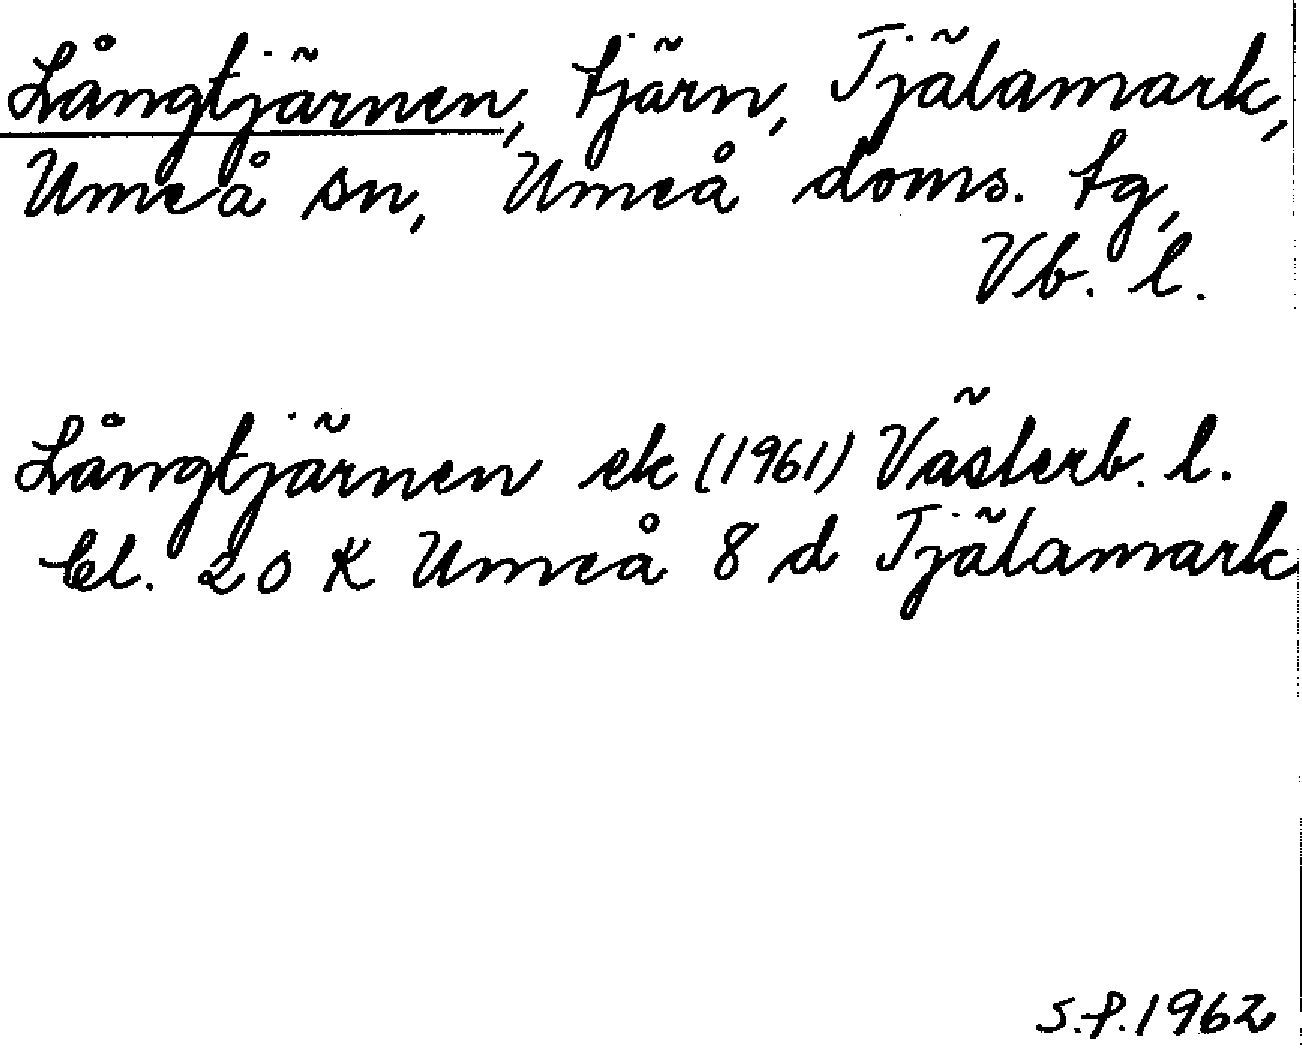 Långtjärnen, tjärn, Tjälamark,
Umeå sn, Umeå doms. tg,
Vb. l.
Långtjärnen ek (1961) Västerb. l.
bl. 20 K Umeå 8 d Tjälamark
S.f. 1962